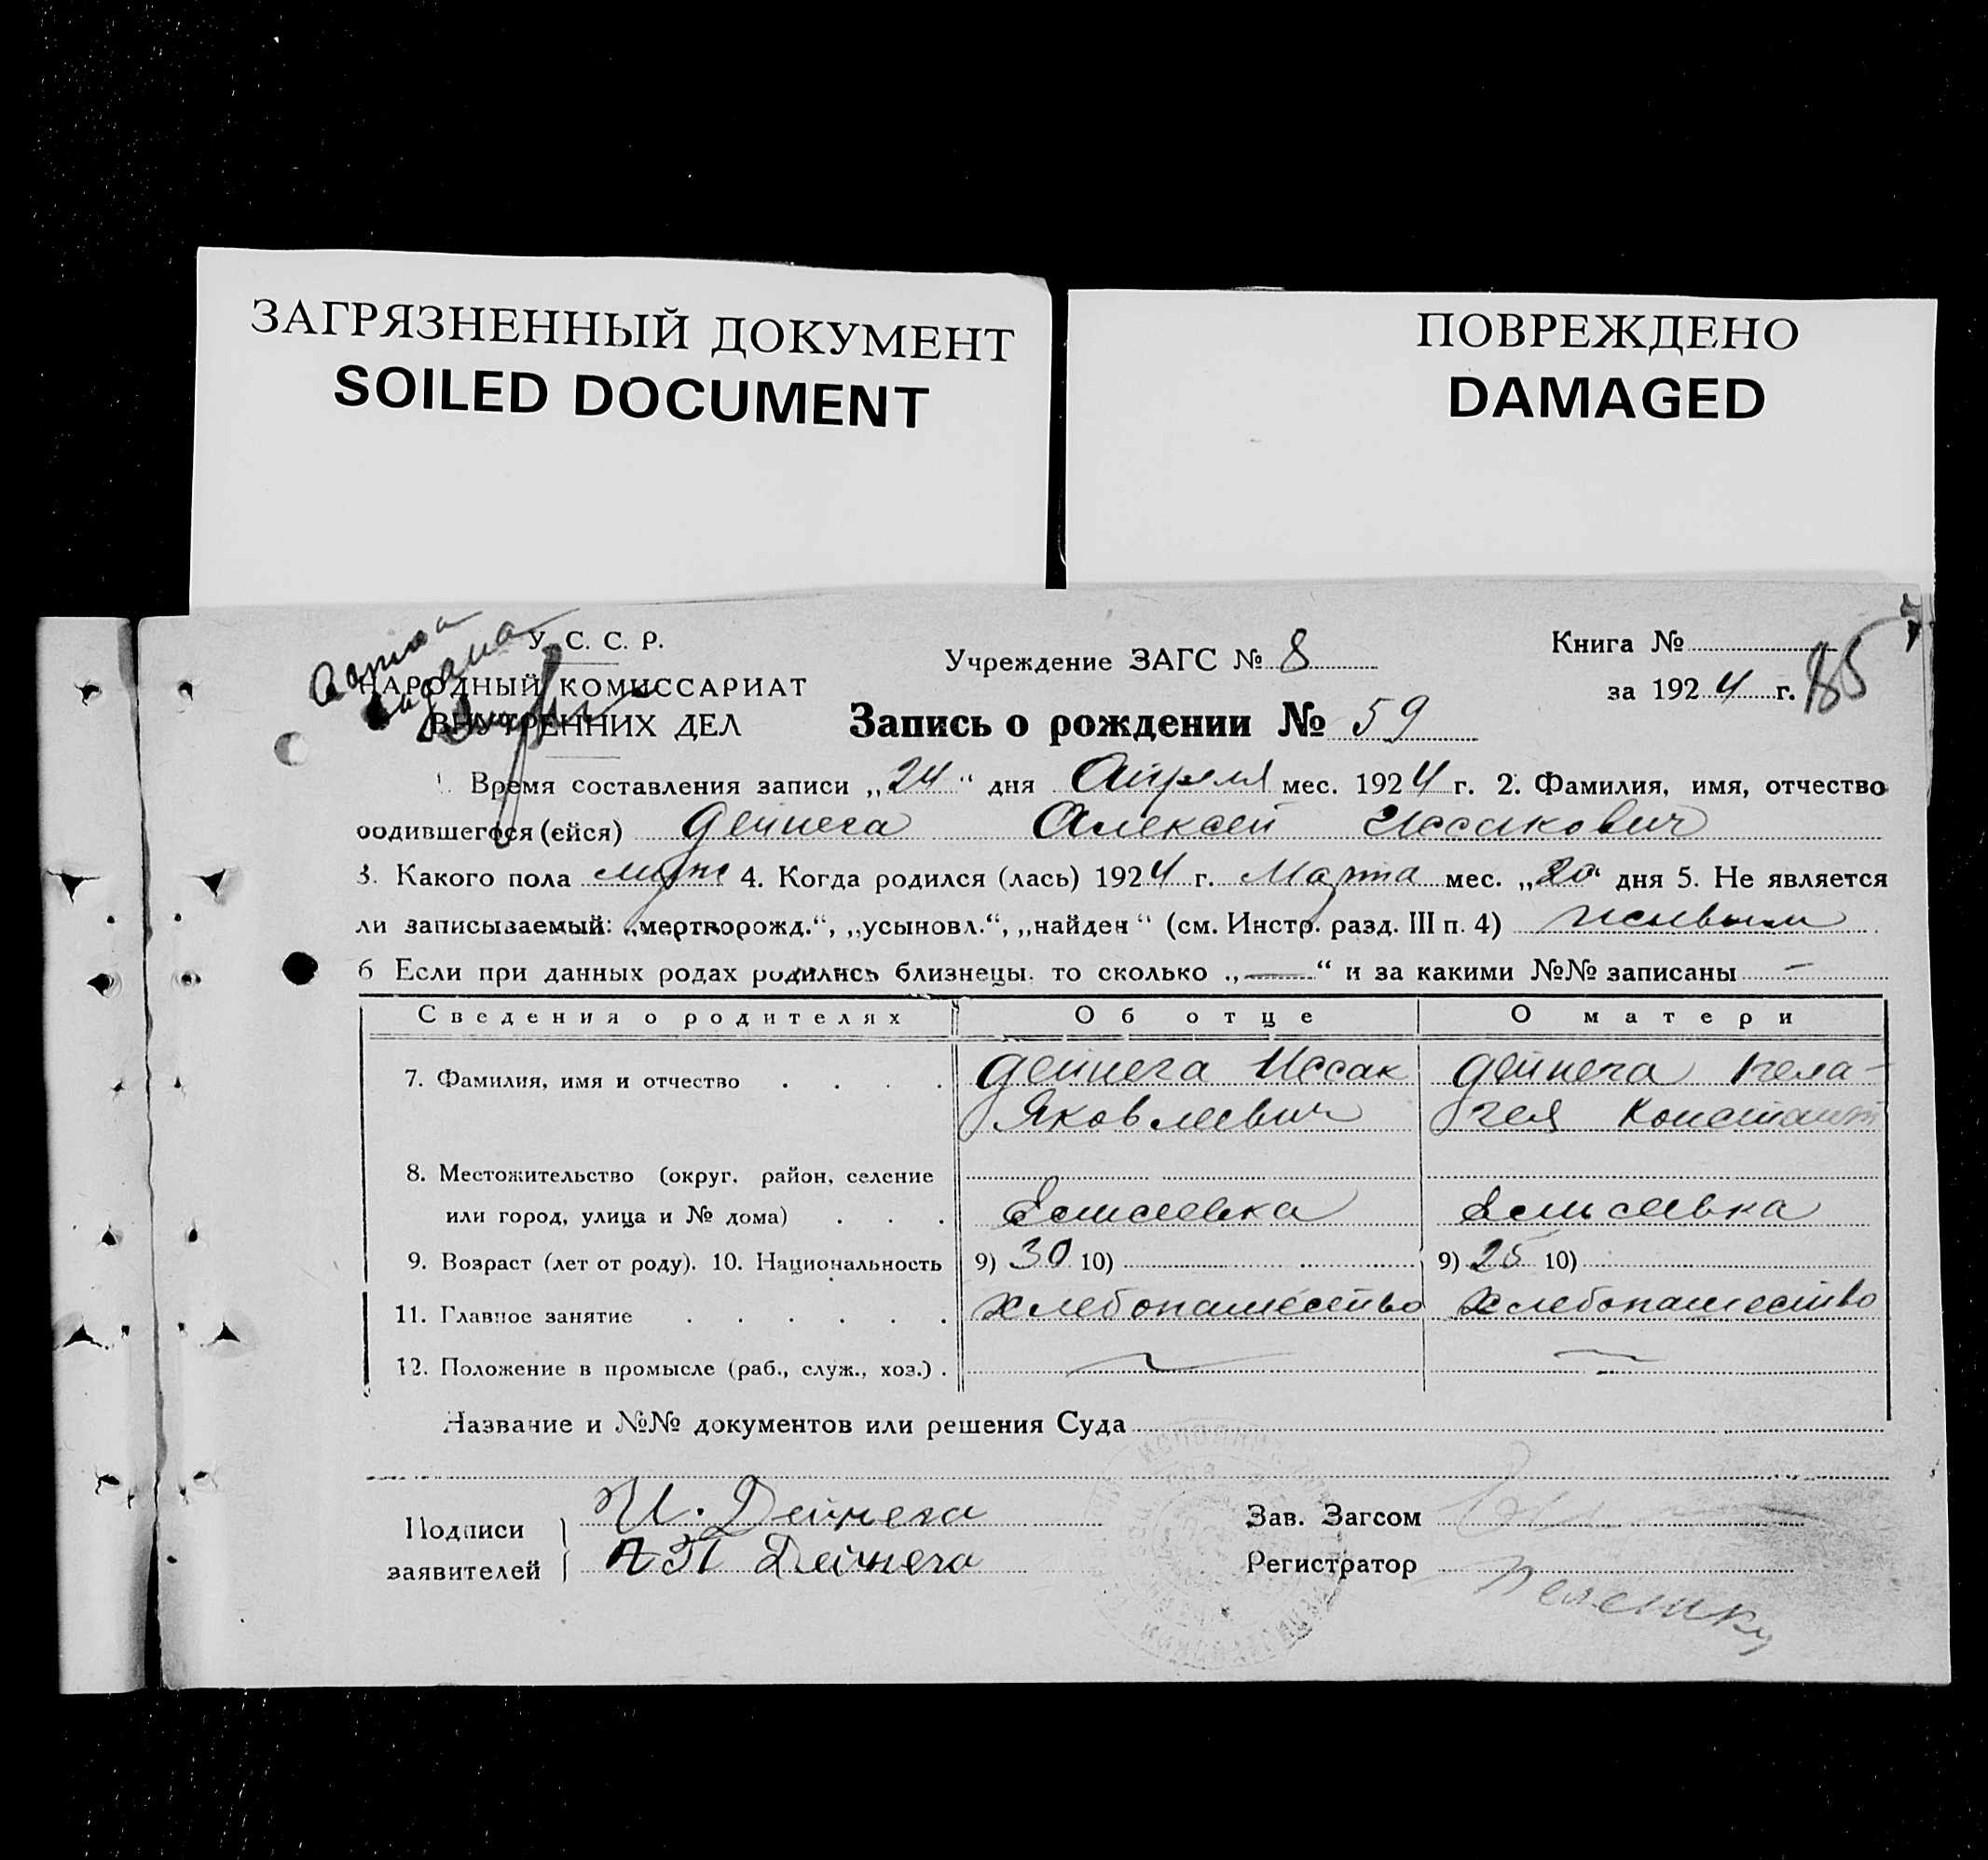 ЗАГРЯЗНЕННЫЙ ДОКУМЕНТ
SOILED DOCUMENT
ПОВРЕЖДЕНО
DAMAGED
У. С. С. Р.
НАРОДНЫЙ КОМИССАРИАТ
ВНУТРЕННИХ ДЕЛ
Учреждение ЗАГС № 8
Книга №
за 1924 г. 85
Запись о рождении № 59
Время составления записи „24“ дня Апреля мес. 1924 г. 2. Фамилия, имя, отчество
родившегося (ейся) Дейнега Алексей Иссакович
3. Какого пола муж 4. Когда родился (лась) 1924 г. Марта мес. „20“ дня 5. Не является
ли записываемый: „мертворожд.“, „усыновл.“, „найден“ (см. Инстр. разд. III п. 4) живым
6 Если при данных родах родились близнецы, то сколько „—“ и за какими №№ записаны –
Сведения о родителях Об отце О матери
7. Фамилия, имя и отчество . . . . Дейнега Иссак Дейнега Пела-
Яковлевич гея Констант
8. Местожительство (округ, район, селение
или город, улица и № дома) . . . Елисеевка Елисеевка
9. Возраст (лет от роду). 10. Национальность 9) 30 10) 9) 25 10)
11. Главное занятие . . . . . . Хлебопашество Хлебопашество
12. Положение в промысле (раб., служ., хоз.) . — —
Название и №№ документов или решения Суда
Подписи
заявителей
И. Дейнега
Дейнега
Зав. Загсом
Регистратор